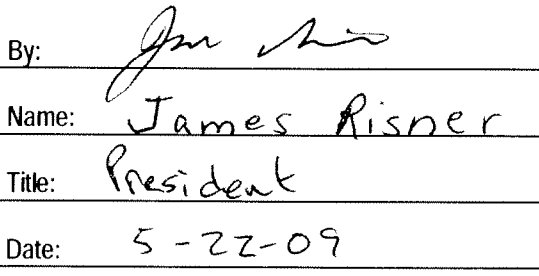 By:
Name: James Risner
Title: President
Date: 5-22-09